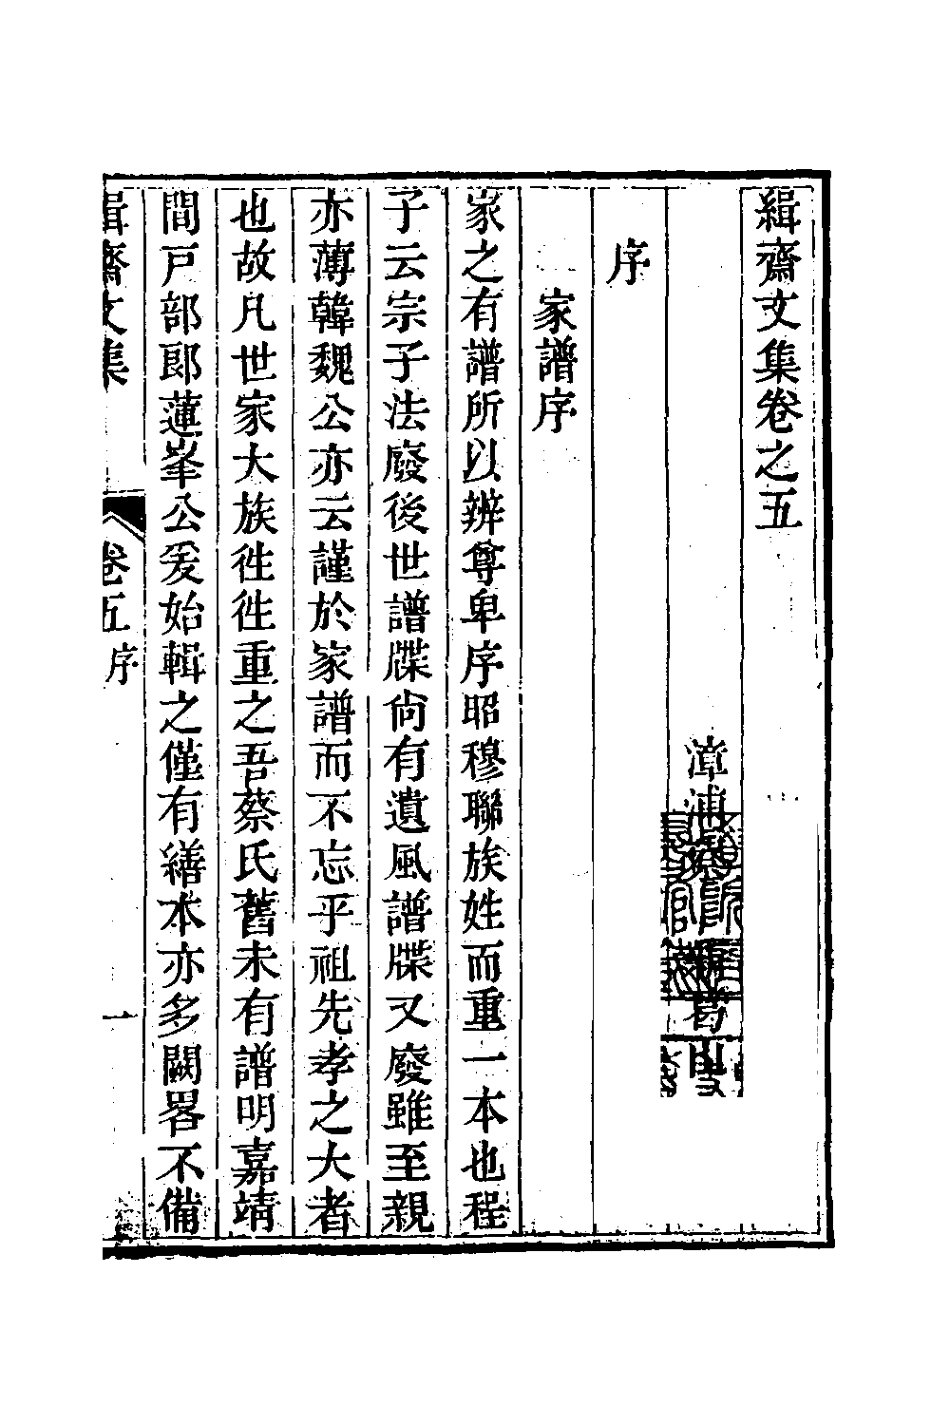 緝齋文集卷之五
漳浦蔡新葛山
序
家譜序
家之有譜所以辨尊卑序昭穆聯族姓而重一本也程
子云宗子法廢後世譜牒尙有遺風譜牒又廢雖至親
亦薄韓魏公亦云謹於家譜而不忘乎祖先孝之大者
也故凡世家大族徃徃重之吾蔡氏舊未有譜明嘉靖
間戸部郎蓮峯公爰始輯之僅有繕本亦多闕畧不備
緝齋文集 卷五 序 一